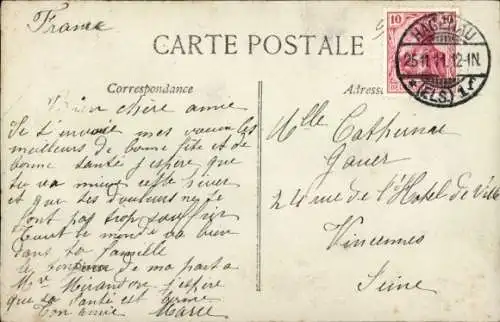 France
CARTE POSTALE
10 10
HAGENAU
25.11.11.12-1N.
*(ELS) 1.f
Correspondance
Adresse
Bien chère amie
Je t'envoie mes vœux les
meilleurs de bonne fête et de
bonne santé j'espère que
tu va mieux cette hiver
et que tes douleurs ne te
font pas trop souffrir
Tout le monde va bien
dans ta famille
bonjour de ma part a
Mme Mirandon j'espère
que sa santé est bonne
Ton amie Marie
Mlle Catherine
Gauer
24 rue de l'Hotel de Ville
Vincennes
Seine